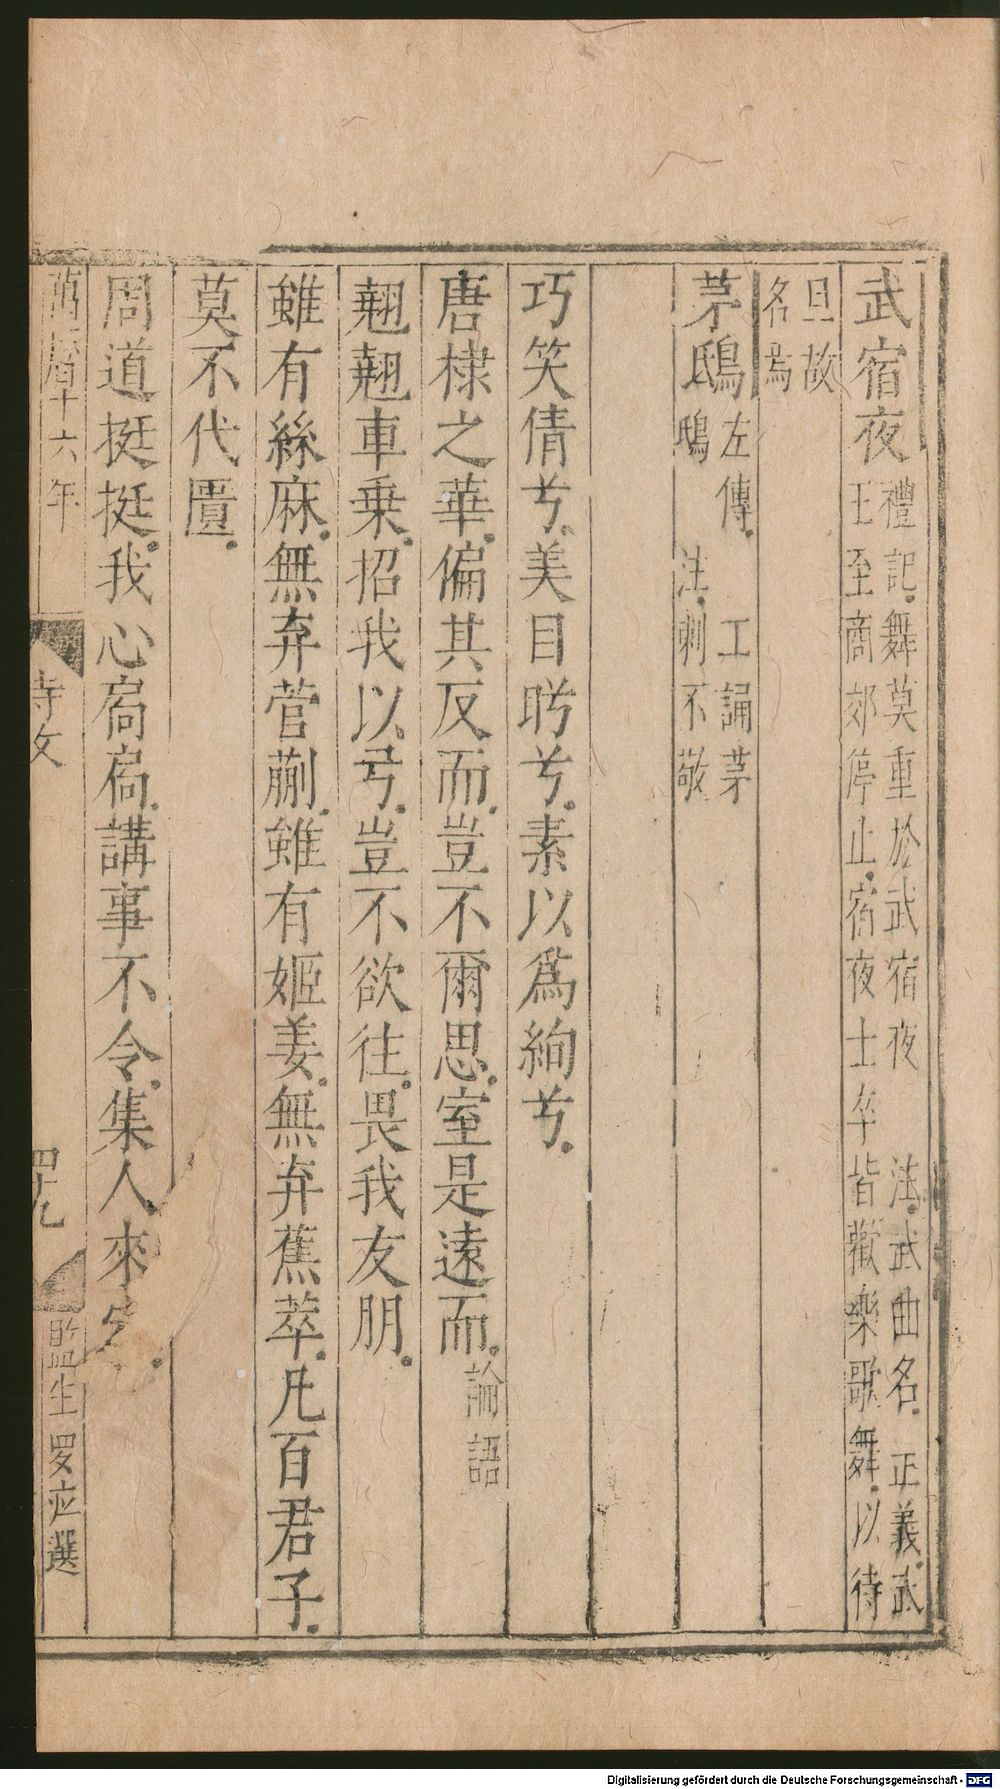 武宿夜 禮記舞莫重於武宿夜 注武曲名 正義武
王至商郊停止宿夜士卒皆歡樂歌舞以待
旦故
名焉
茅鴟 左傳 工誦茅
鴟 注刺不敬
巧笑倩兮美目盻兮素以爲絢兮
唐棣之華偏其反而豈不爾思室是遠而 論語
翹翹車乗招我以弓豈不欲往畏我友朋
雖有絲麻無弃菅蒯雖有姬姜無弃蕉萃凡百君子
莫不代匱
周道挺挺我心扃扃講事不令集人來
萬曆十六年
詩文
四十九
監生
選
Digitalisierung gefördert durch die Deutsche Forschungsgemeinschaft - DFG